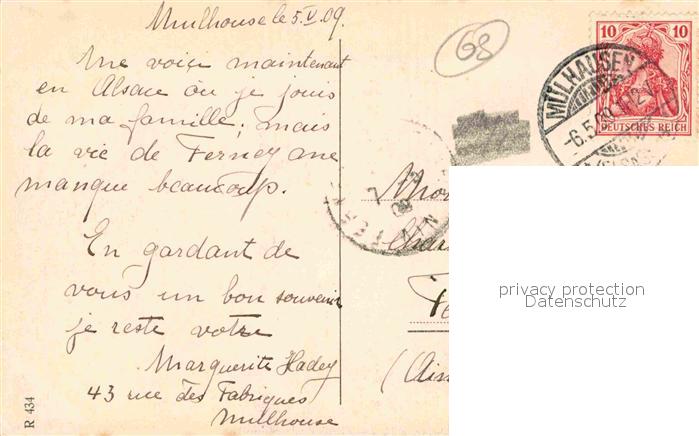 Mulhouse le 5.V.09.
Me voici maintenant
en Alsace où je jouis
de ma famille; mais
la vie de Ferney me
manque beaucoup.
En gardant de
vous un bon souvenir
je reste votre
Marguerite Hadey
43 rue des Fabriques
Mulhouse
R 434
68
10 10
DEUTSCHES REICH
MÜLHAUSEN
-6.5.09
(Ain
privacy protection
Datenschutz